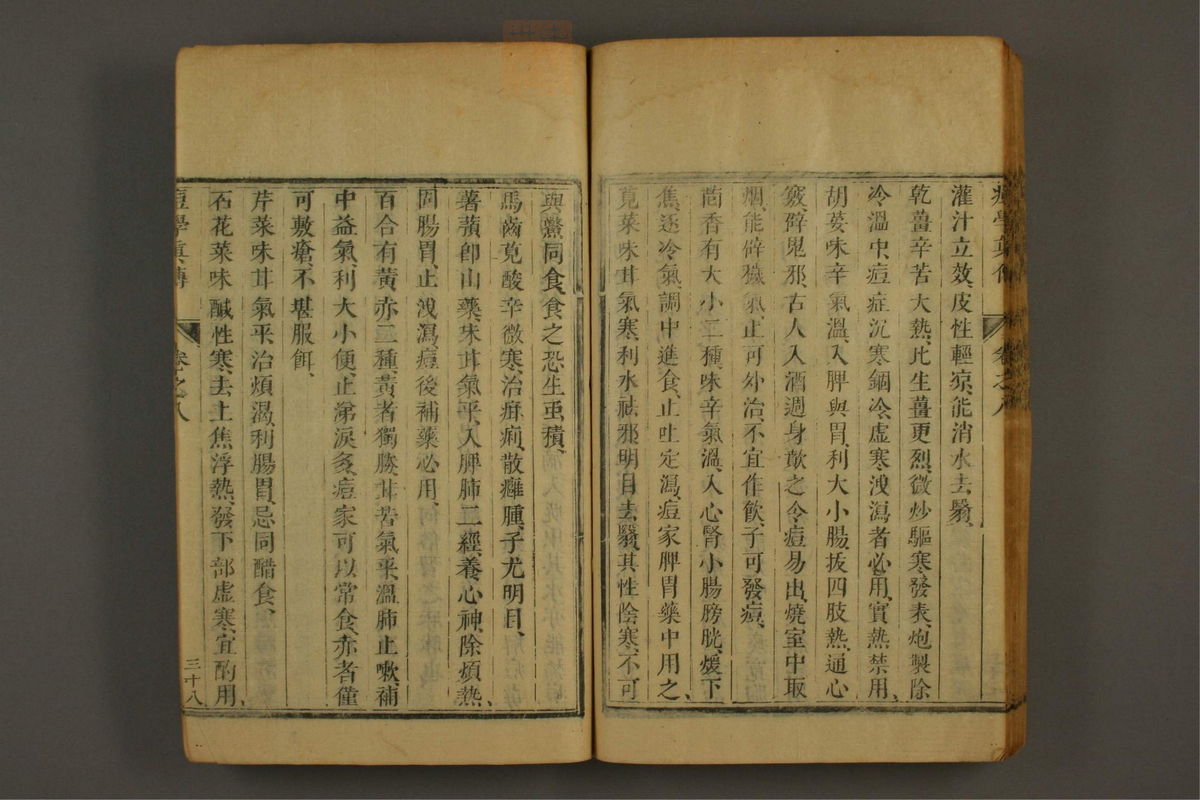 灌汁立效、皮性輕涼、能消水去翳、
乾薑辛苦大熱、比生薑更烈、微炒驅寒發表、炮製除
冷溫中、痘症沉寒錮冷、虛寒洩瀉者必用、實熱禁用、
胡荽味辛氣溫、入脾與胃、利大小腸、拔四肢熱、通心
竅、辟鬼邪、古人入酒週身歕之、令痘易出、燒室中取
烟、能辟穢氣、止可外治、不宜作飲、子可發痘、
茴香有大小二種、味辛氣溫、入心腎小腸膀胱、煖下
焦、逐冷氣、調中進食、止吐定瀉、痘家脾胃藥中用之、
莧菜味甘氣寒、利水祛邪、明目去翳、其性陰寒、不可
與鱉同食、食之恐生虫積、
馬齒莧酸辛微寒、治痳痢、散癰腫、子尤明目、
薯蕷卽山藥、味甘氣平、入脾肺二經、養心神、除煩熱、
固腸胃、止洩瀉、痘後補藥必用、
百合有黃赤二種、黃者獨勝、甘苦氣平、溫肺止嗽、補
中益氣、利大小便、止涕淚多、痘家可以常食、赤者僅
可敷瘡、不堪服餌、
芹菜味甘氣平、治煩渴、利腸胃、忌同醋食、
石花菜味鹹性寒、去上焦浮熱、發下部虛寒、宜酌用、
痘學眞傳 卷之八 三十八